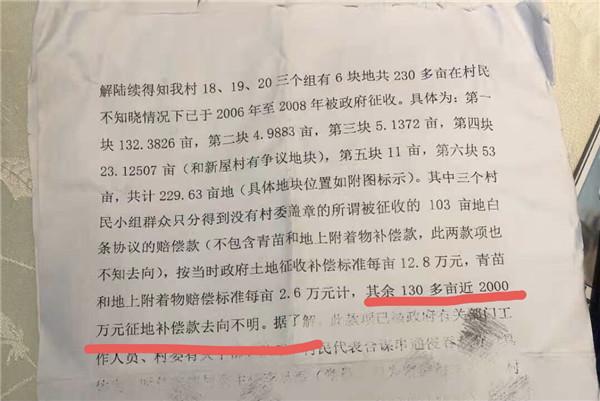 解陆续得知我村 18、19、20 三个组有 6 块地共 230 多亩在村民
不知晓情况下已于 2006 年至 2008 年被政府征收。具体为：第一
块 132.3826 亩，第二块 4.9883 亩，第三块 5.1372 亩，第四块
23.12507 亩（和新屋村有争议地块），第五块 11 亩，第六块 53
亩，共计 229.63 亩地（具体地块位置如附图标示）。其中三个村
民小组群众只分得到没有村委盖章的所谓被征收的 103 亩地白
条协议的赔偿款（不包含青苗和地上附着物补偿款，此两款项也
不知去向），按当时政府土地征收补偿标准每亩 12.8 万元，青苗
和地上附着物赔偿标准每亩 2.6 万元计，其余 130 多亩近 2000
万元征地补偿款去向不明。据了解，此款项已被政府有关部门工
作人员、村委有关 民代表合谋串通侵